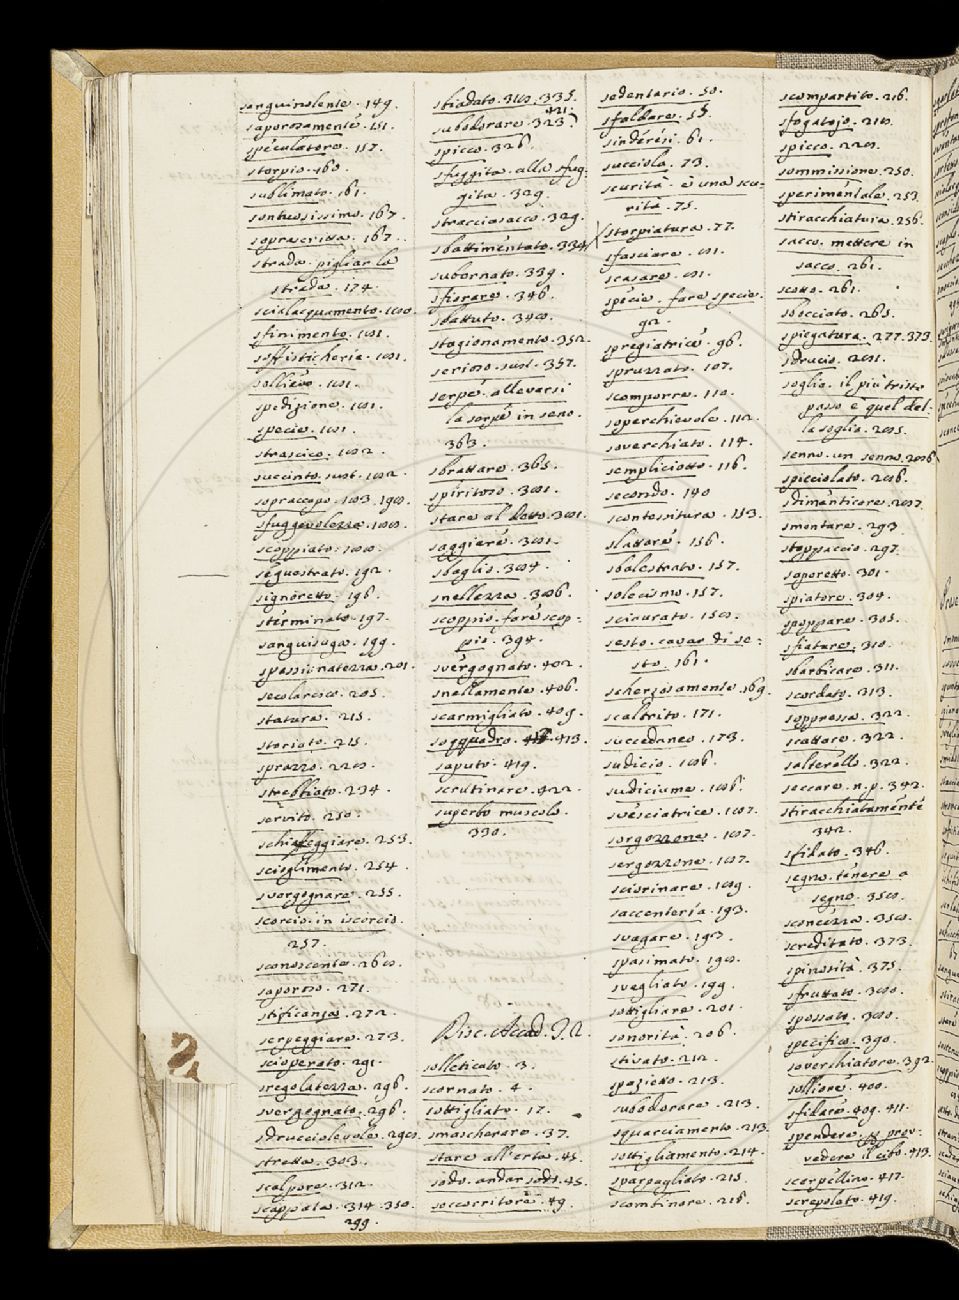 sanguinolente. 149.
saporosamente. 151.
speculatore. 157.
storpio. 160.
sublimato. 161.
sontuosissimo. 167.
soprascritta. 167.
strada. pigliar la
strada. 174.
scialacquamento. 180.
sfinimento. 181.
soffisticheria. 181.
sollievo. 181.
spedizione. 181.
specie. 181.
strascico. 182.
succinto. sust. 182.
sopraccapo. 183. 190.
sfuggevolezza. 188.
scoppiato. 188.
sequestrato. 192.
signoretto. 196.
sterminato. 197.
sanguisuga. 199.
spassionatezza. 201.
secolaresco. 205.
statura. 215.
storiato. 215.
sprazzo. 228.
strebbiato. 234.
servito. 250.
schiaffeggiare. 253.
scioglimento. 254.
svergognare. 255.
scorcio. in iscorcio.
257.
sconoscente. 268.
saporoso. 271.
stificanza. 272.
serpeggiare. 273.
scioperato. 291.
sregolatezza. 296.
svergognato. 296.
sdrucciolevole. 298.
stretta. 303.
scalpore. 312.
scappata. 314. 350.
299.
sfiadato. 318. 335.
421.
subodorare. 323.
spicco. 326.
sfuggita. alla sfug-
gita. 329.
stracciasacco. 329.
sbattimentato. 334.
subornato. 339.
sfiorare. 346.
sbattuto. 348.
stagionamento. 352.
serioso. sust. 357.
serpe. allevarsi
la serpe in seno.
363.
sbrattare. 365.
spiritoso. 381.
stare al detto. 381.
saggiare. 381.
sbaglio. 384.
snellezza. 386.
scoppio. fare scop-
pio. 394.
svergognato. 402.
snellamente. 406.
scarmigliato. 409.
soqquadro. 413.
saputo. 419.
scrutinare. 422.
superbo muscolo.
330.
Disc. Accad. T. 2.
solleticato. 3.
scornato. 4.
sottigliato. 17.
smascherare. 37.
stare all'erta. 45.
sodo. andar sodo. 45.
soccorritore. 49.
sedentario. 50.
sfaldare. 55.
sinderesi. 61.
succiola. 73.
scurità. è una scu-
rità. 75.
storpiatura. 77.
sfasciare. 81.
scasare. 81.
specie. fare specie.
92.
spregiatrice. 96.
spruzzato. 107.
scomporre. 110.
soperchievole. 112.
soverchiato. 114.
sempliciotto. 116.
secondo. 140
scontessitura. 153.
slattare. 156.
sbalestrato. 157.
solecismo. 157.
scirurato. 158.
sesto. cavar di se-
sto. 161.
scherzosamente. 169.
scaltrito. 171.
succedaneo. 173.
sudicio. 186.
sudiciume. 186.
svesciatrice. 187.
sorgozzone. 187.
sergozzone. 187.
sciorinare. 189.
saccenteria. 193.
svagare. 193.
spasimato. 198.
svegliato. 199.
sottigliare. 201.
sonorità. 206.
stivato. 212.
spazietto. 213.
subodorare. 213.
squarciamento. 213.
sottigliamento. 214.
sparpagliato. 215.
scombinare. 215.
scompartito. 216.
sfogatojo. 218.
spicco. 228.
sommissione. 250.
sperimentale. 253.
stiracchiatura. 256.
sacco. mettere in
sacco. 261.
scotto. 261.
sbocciato. 265.
spiegatura. 277. 373.
sdrucio. 281.
soglia. il più tristo
passo è quel del-
la soglia. 285.
senno. un senno. 286
spicciolato. 286.
dimenticare. 287.
smontare. 293
stoppaccio. 297.
saporetto. 301.
spiatore. 304.
spoppare. 305.
sfiatare. 310.
sbarbicare. 311.
scordato. 313.
soppressa. 322.
scattare. 322.
salterello. 322.
seccare. n. p. 342.
stiracchiatamente
342.
sfidato. 346.
segno. tenere a
segno. 358.
sconcezza. 358.
screditato. 373.
spinosità. 375.
sfruttato. 380.
spossato. 380.
specifico. 390.
soverchiatore. 392.
solliore. 400.
sfidare. 409. 411.
spendere. per prov-
vedere il cibo. 413.
scarpellino. 417.
screpolato. 419.